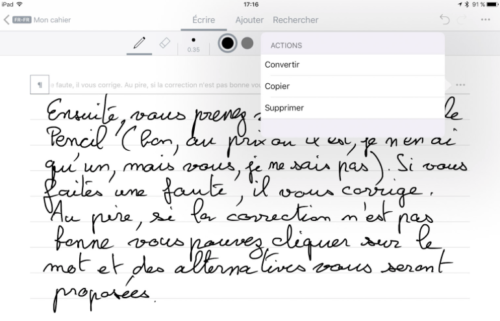 iPad 17:16 91 %
FR-FR Mon cahier Écrire Ajouter Rechercher
0.35
ACTIONS
Convertir
Copier
Supprimer
¶ faute, il vous corrige. Au pire, si la correction n'est pas bonne vou
Ensuite, vous prenez le
Pencil (bon, au prix où il est, je n'en ai
qu'un, mais vous, je ne sais pas). Si vous
faites une faute, il vous corrige.
Au pire, si la correction n'est pas
bonne vous pouvez cliquer sur le
mot et des alternatives vous seront
proposées.